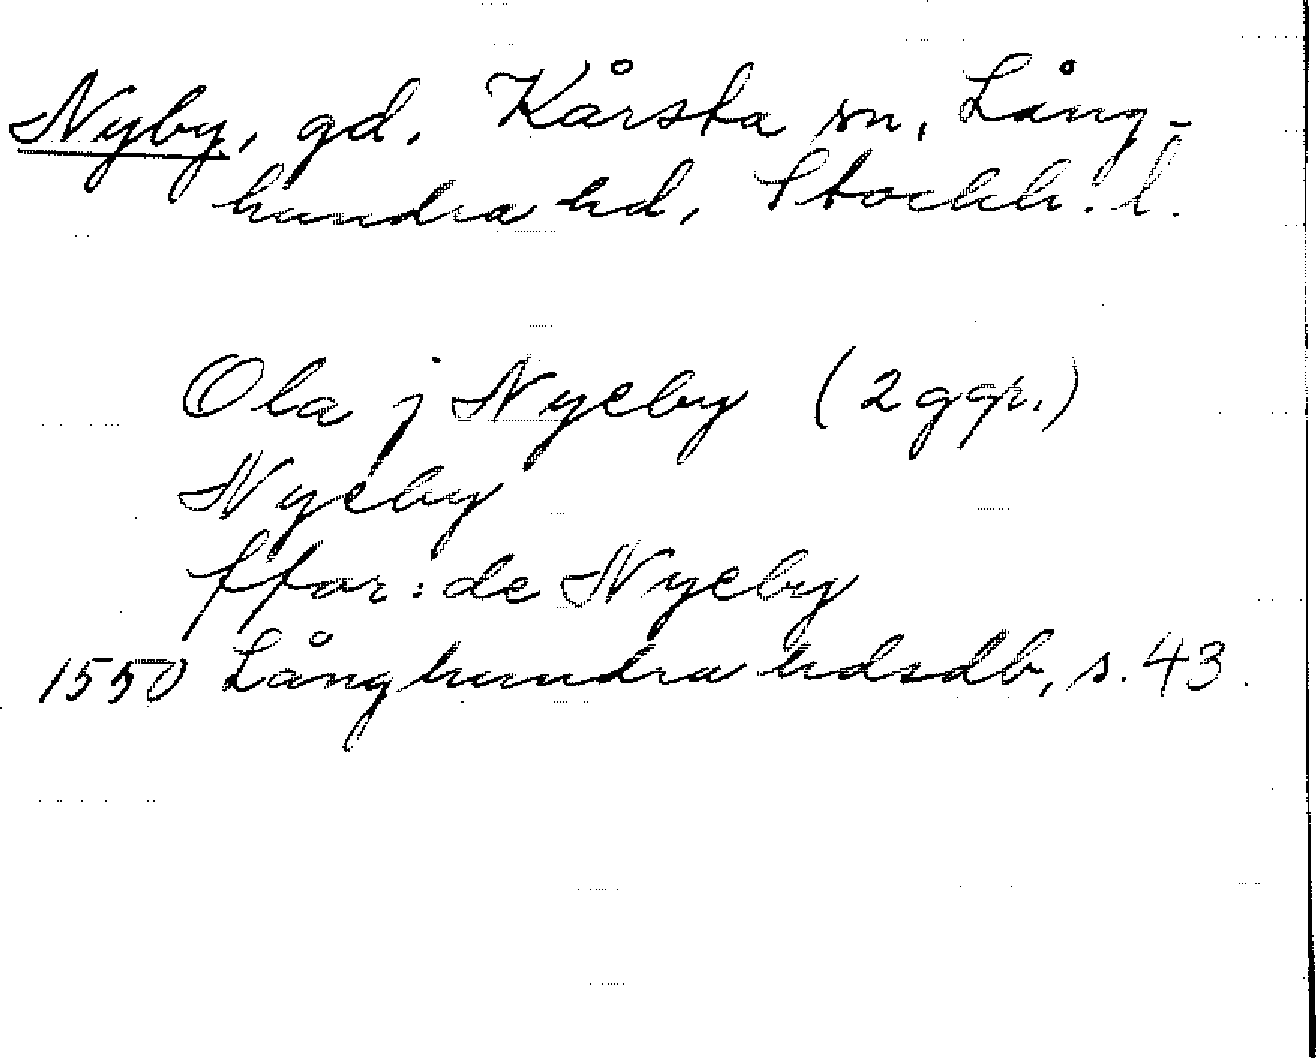 Nyby, gd, Kårsta sn, Lång-
hundra hd, Stockh. l.
Ola j Nyeby (2 ggr.)
Nyeby
ffor: de Nyeby
1550 Långhundra hdsdb, s. 43.